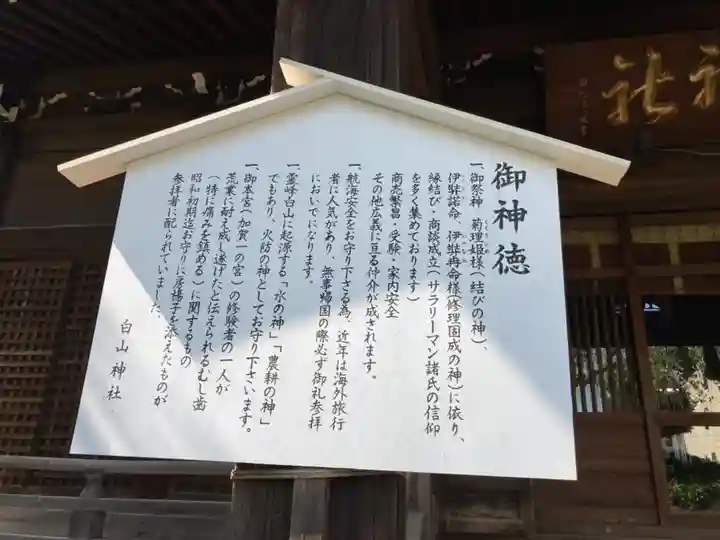 御神徳
一、御祭神 菊理姫様(結びの神)、
伊弉諾命、伊弉冉命様(修理固成の神)に依り、
縁結び・商談成立(サラリーマン諸氏の信仰
を多く集めております)
商売繁昌・受験・家内安全
その他広義に亘る仲介が成されます。
一、航海安全をお守り下さる為、近年は海外旅行
者に人気があり、無事帰国の際必ず御礼参拝
においでになります。
一、霊峰白山に起源する「水の神」「農耕の神」
でもあり、火防の神としてお守り下さいます。
一、御本宮(加賀一の宮)の修験者の一人が
荒業に耐え成し遂げたと伝えられるむし歯
(特に痛みを鎮める)に関するもの
昭和初期迄お守りに房楊子を添えたものが
参拝者に配られていました。
白山神社
社